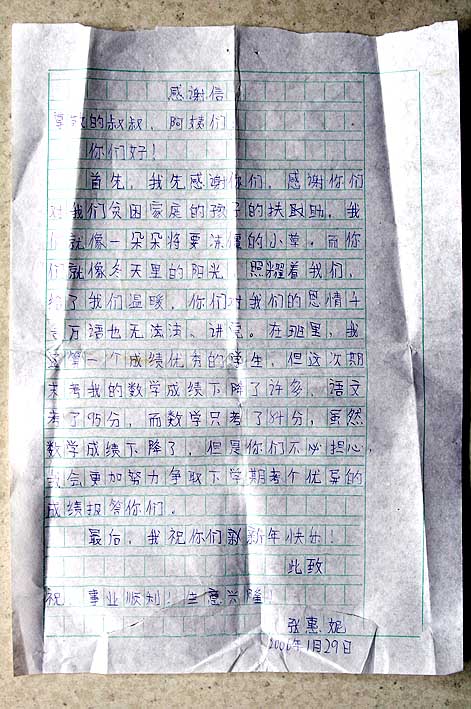 感谢信
尊敬的叔叔、阿姨们:
你们好!
首先,我先感谢你们,感谢你们
对我们贫困家庭的孩子的扶助,我
们就像一朵朵将要冻僵的小草。而你
们就像冬天里的阳光,照耀着我们,
给了我们温暖,你们对我们的恩情千
言万语也无法讲。在班里,我
是第一个成绩优秀的学生,但这次期
末考我的数学成绩下降了许多,语文
考了95分,而数学只考了84分,虽然
数学成绩下降了,但是你们不必担心,
我会更加努力争取下学期考个优异的
成绩报答你们。
最后,我祝你们新年快乐!
此致
祝:事业顺利!生意兴隆!
张惠妮
2006年1月29日